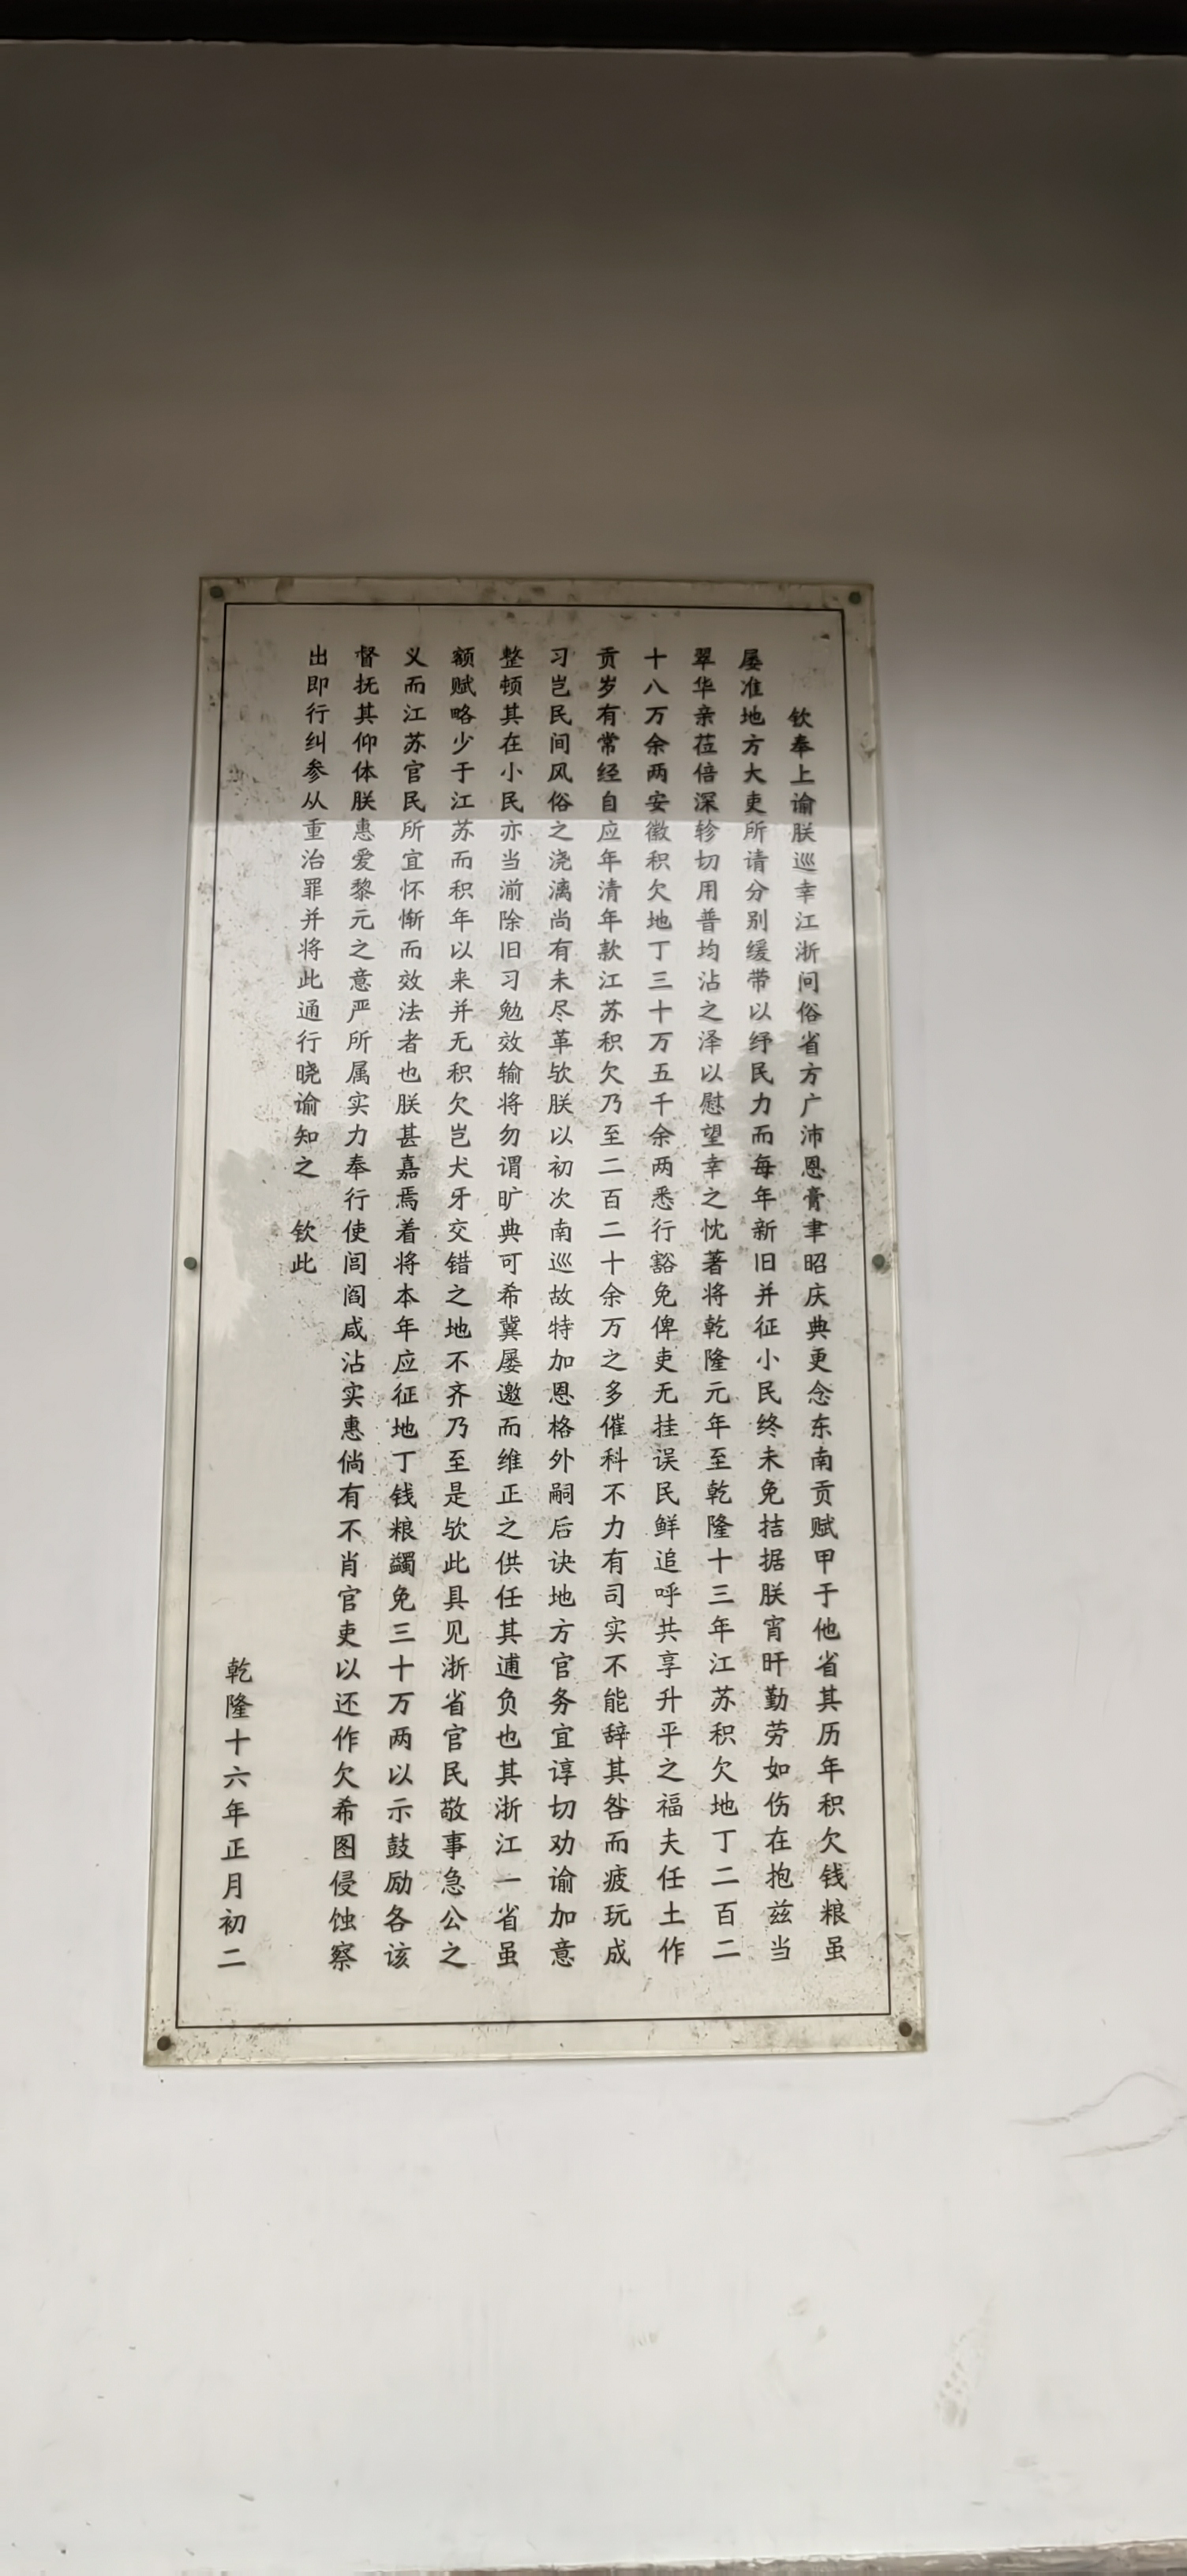 钦奉上谕朕巡幸江浙问俗省方广沛恩膏聿昭庆典更念东南贡赋甲于他省其历年积欠钱粮虽
屡准地方大吏所请分别缓带以纾民力而每年新旧并征小民终未免拮据朕宵旰勤劳如伤在抱兹当
翠华亲莅倍深轸切用普均沾之泽以慰望幸之忱著将乾隆元年至乾隆十三年江苏积欠地丁二百二
十八万余两安徽积欠地丁三十万五千余两悉行豁免俾吏无挂误民鲜追呼共享升平之福夫任土作
贡岁有常经自应年清年款江苏积欠乃至二百二十余万之多催科不力有司实不能辞其咎而疲玩成
习岂民间风俗之浇漓尚有未尽革欤朕以初次南巡故特加恩格外嗣后诀地方官务宜谆切劝谕加意
整顿其在小民亦当湔除旧习勉效输将勿谓旷典可希冀屡邀而维正之供任其逋负也其浙江一省虽
额赋略少于江苏而积年以来并无积欠岂犬牙交错之地不齐乃至是欤此具见浙省官民敬事急公之
义而江苏官民所宜怀惭而效法者也朕甚嘉焉着将本年应征地丁钱粮蠲免三十万两以示鼓励各该
督抚其仰体朕惠爱黎元之意严所属实力奉行使闾阎咸沾实惠倘有不肖官吏以还作欠希图侵蚀察
出即行纠参从重治罪并将此通行晓谕知之 钦此
乾隆十六年正月初二